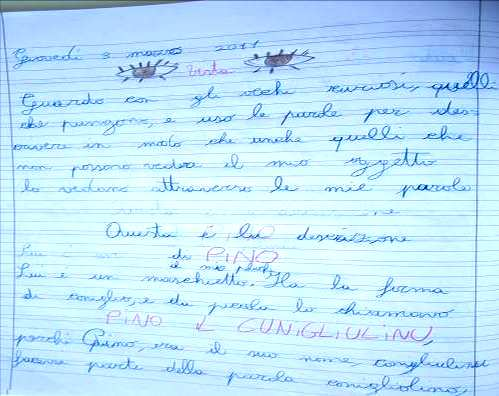 Giovedì 3 marzo 2011
Vista
Guardo con gli occhi curiosi, quelli
che pungono, e uso le parole per des-
crivere in modo che anche quelli che
non possono vedere il mio oggetto
lo vedano attraverso le mie parole
Questa è la descrizione
di PINO
il mio
Lui è un maschietto. Ha la forma
di coniglio, e da piccola lo chiamavo
PINO CUNIGLIULINU,
perchè Pino, era il suo nome,
faceva parte della parola conigliolino,